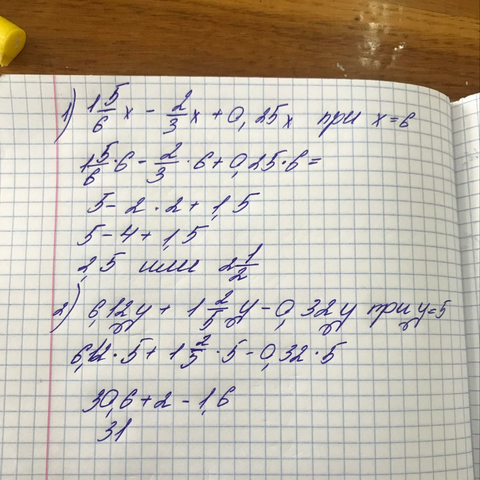 1) 1 5/6 x - 2/3 x + 0,25x при x=6
1 5/6 · 6 - 2/3 · 6 + 0,25 · 6 =
5 - 2 · 2 + 1,5
5 - 4 + 1,5
2,5 или 2 1/2
2) 6,12y + 1 2/5 y - 0,32y при y=5
6,12 · 5 + 1 2/5 · 5 - 0,32 · 5
30,6 + 2 - 1,6
31